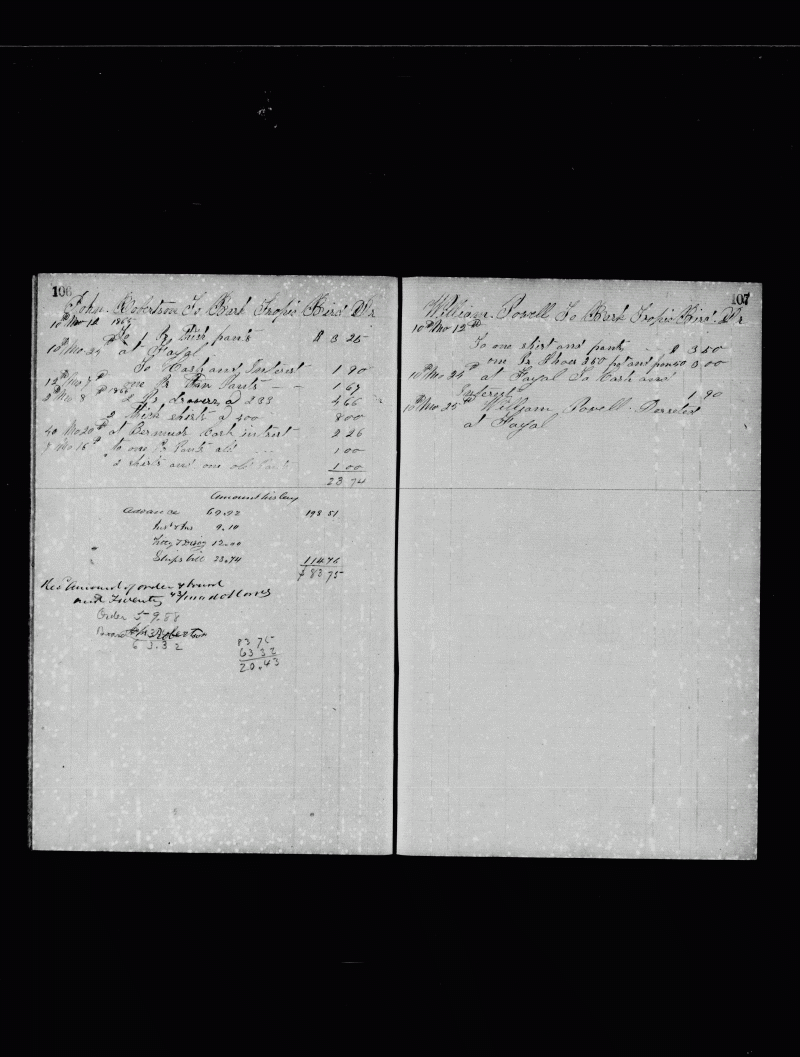 106
John Robertson To Bark Tropic Bird Dr
10th Mo 12 1865
To 1 Pr Thick pants $ 3 25
10th Mo 24th at Fayal
To Cash and Interest 1 90
12th Mo 7th one Pr Thin Pants 1 67
2nd Mo 8th 1866 2 Prs drawers @ 233 4 66
2 Thick shirts @ 400 8 00
4th Mo 20th at Bermuda Cash intrest 2 26
Mo 16th to one Pr Pants old 1 00
2 shirts and one old 1 00
23 74
Amount his Lay
Advance 69.92 198 51
9.10
12.00
Ships bill 23.74 114 76
$ 83.75
Rec'd Amount of order & board
and Twenty 43/100 dollars
Order 59.88
Board
John Robertson
63.32
83 75
63 32
20.43
107
William Powell To Bark Tropic Bird Dr
10th Mo 12th
To one shirt and pants $ 3 50
one Pr Shoes 250 pot and pan 50 3 00
10th Mo 24th at Fayal To Cash and
Interest 1 90
10th Mo 25th William Powell Deserted
at Fayal